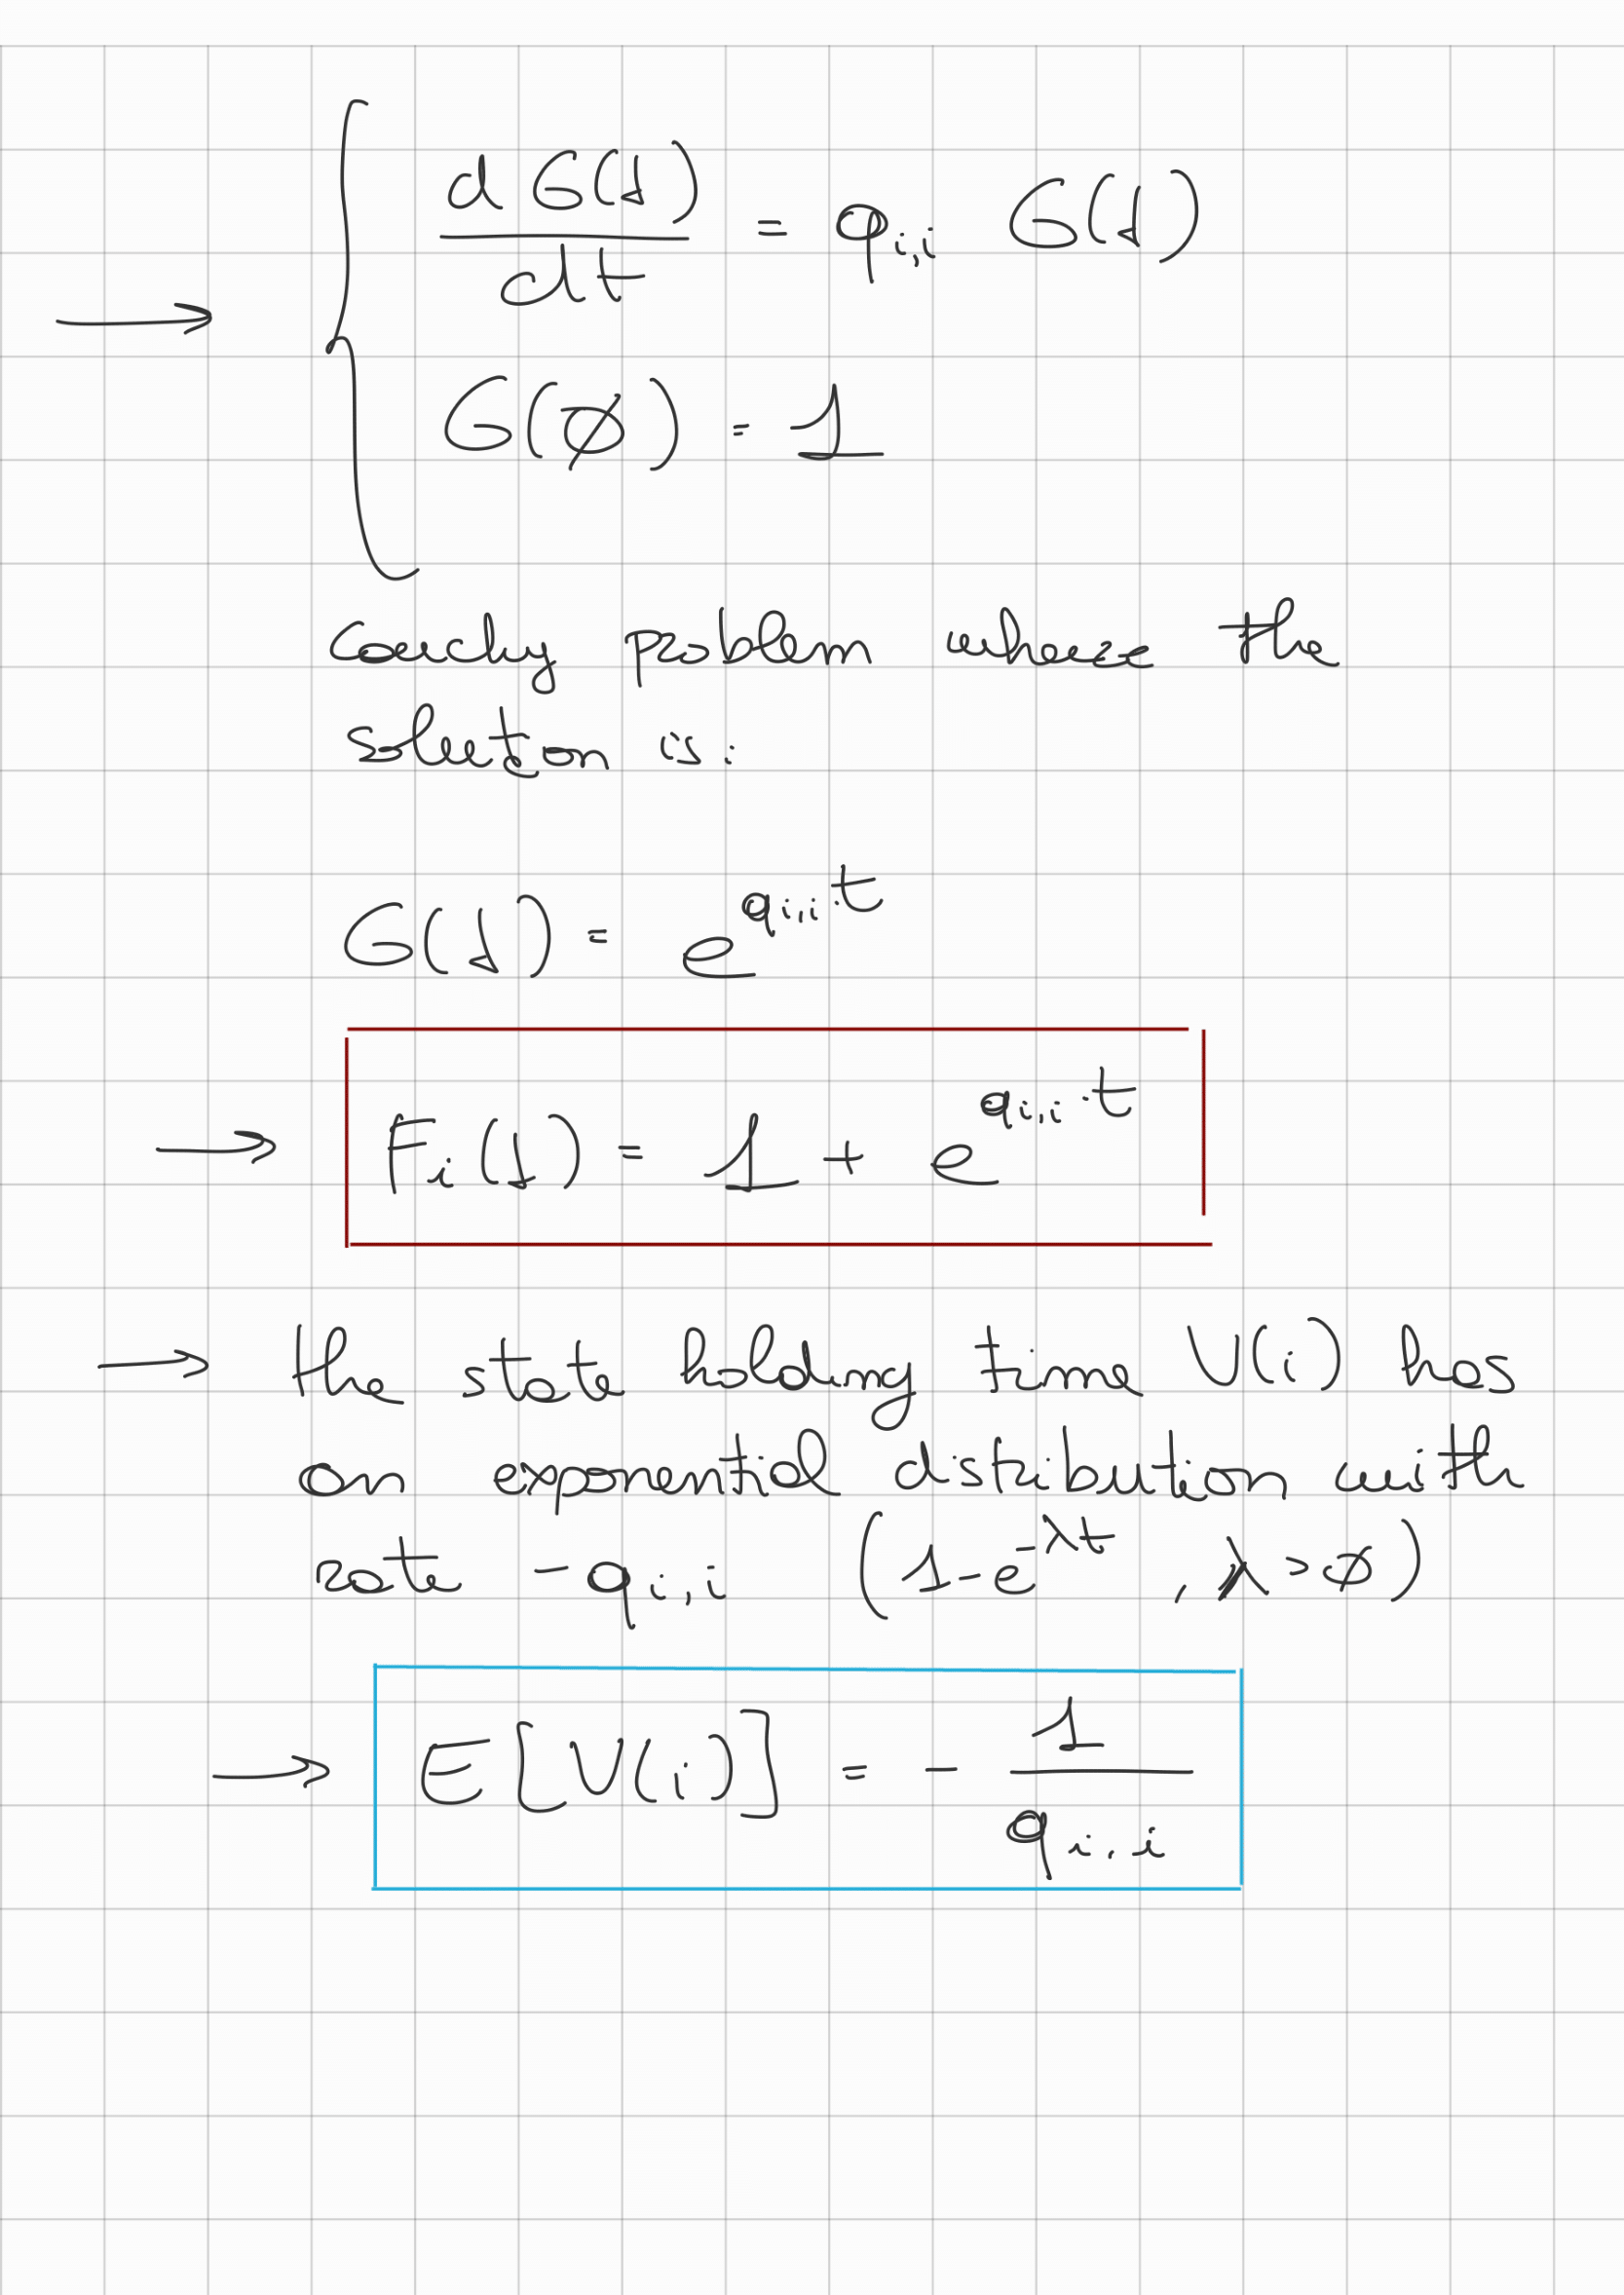 → { d G(t) / dt = q_{i,i} G(t)
G(∅) = 1
Cauchy problem where the
solution is:
G(t) = e^{q_{i,i}·t}
→ F_i(t) = 1 + e^{q_{i,i}·t}
→ the state holding time V(i) has
an exponential distribution with
rate -q_{i,i} (1-e^{-λt}, λ>∅)
→ E[V(i)] = - 1 / q_{i,i}